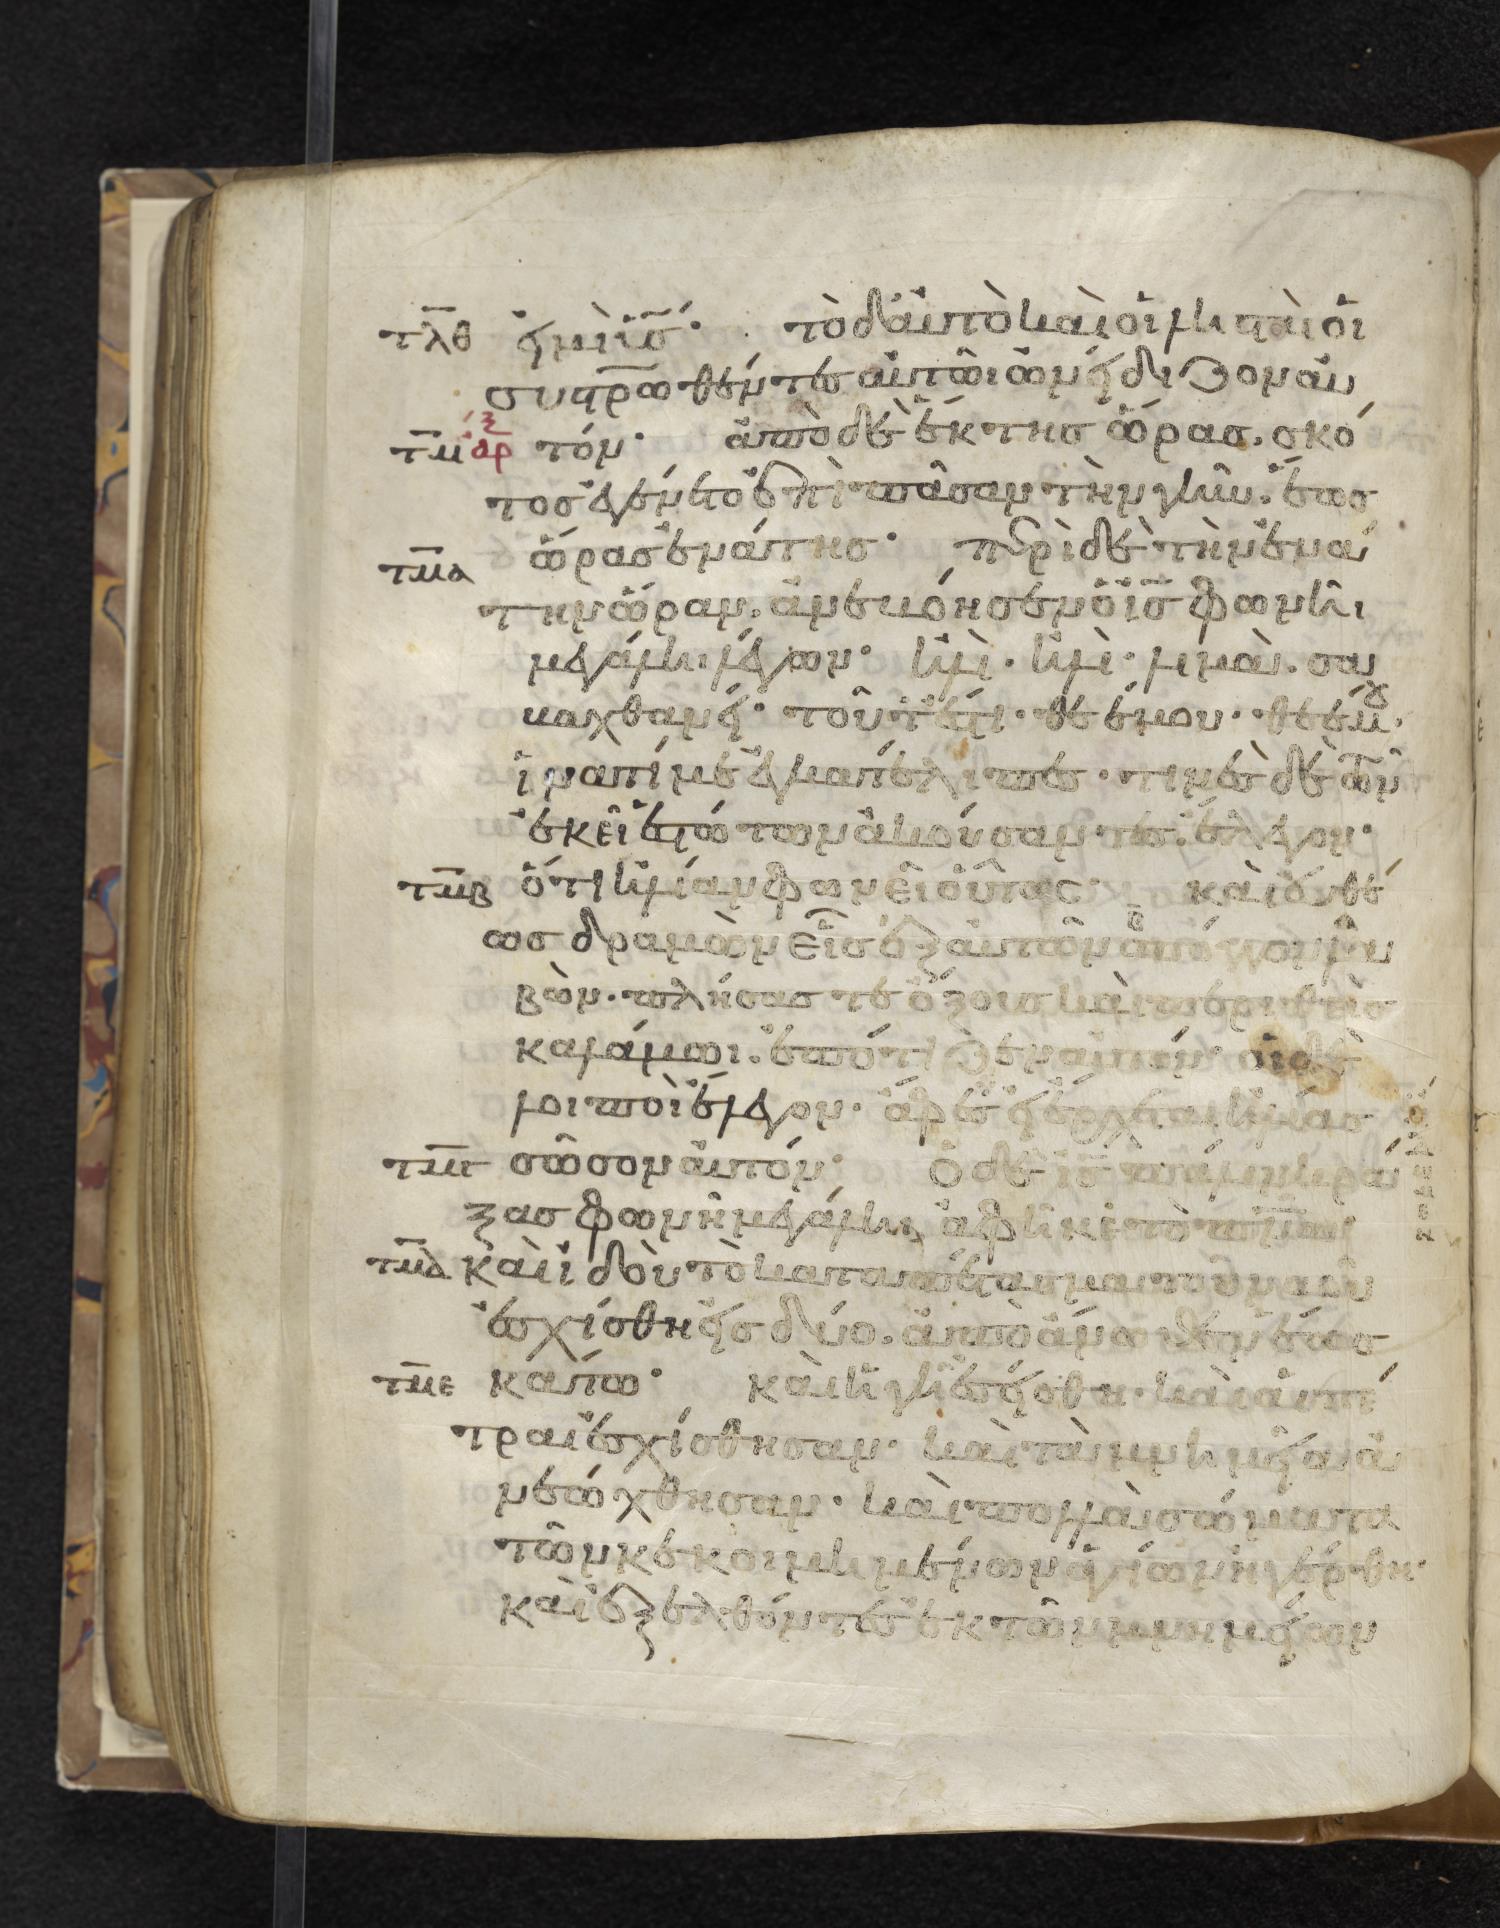 τλθ εἰμὶ ις̅· τὸ δ' αὐτὸ καὶ οἱ λησταὶ οἱ
συσταυρωθέντες αὐτῶ ὠνείδιζον αὐ
τμ ἀρξ τόν· ἀπὸ δὲ ἕκτης ὥρας. σκό
τος ἐγένετο ἐπὶ πᾶσαν τὴν γῆν. ἕως
τμα ὥρας ἐνάτης· περὶ δὲ τὴν ἐνά
την ὥραν. ἀνεβόησεν ὁ ις̅ φωνῆι
μεγάλη λέγων· ἠλὶ· ἠλὶ· λιμὰ. σα
βαχθανεί· τοῦτ' ἔστι· θεέ μου· θεέ μου.
ἱνατί με ἐγκατέλιπες· τινὲς δὲ τῶν
ἐκεῖ ἑστώτων ἀκούσαντες. ἔλεγον·
τμβ ὅτι ἠλίαν φωνεῖ οὗτος· καὶ εὐθέ
ως δραμὼν εἷς ἐξ αὐτῶν σπόγγον λα
βὼν· πλήσας τε ὄξους καὶ περιθεὶς
καλάμωι. ἐπότιζεν αὐτόν· οἱ δὲ
λοιποὶ ἔλεγον· ἄφες εἰ ἔρχεται ἠλίας
τμγ σῶσον αὐτόν· ὁ δὲ ις̅ πάλιν κρά
ξας φωνῆ μεγάλη, ἀφῆκε τὸ πνα̅·
τμδ καὶ ἰδοὺ τὸ καταπέτασμα τοῦ ναοῦ
ἐσχίσθη εἰς δύο. ἀπὸ ἄνωθεν ἕως
τμε κάτω· καὶ ἡ γῆ ἐσείσθη· καὶ αἱ πέ
τραι ἐσχίσθησαν· καὶ τὰ μνημεῖα ἀ
νεώχθησαν· καὶ πολλὰ σώματα
τῶν κεκοιμημένων ἁγίων ἠγέρθη·
καὶ ἐξελθόντες ἐκ τῶν μνημείων